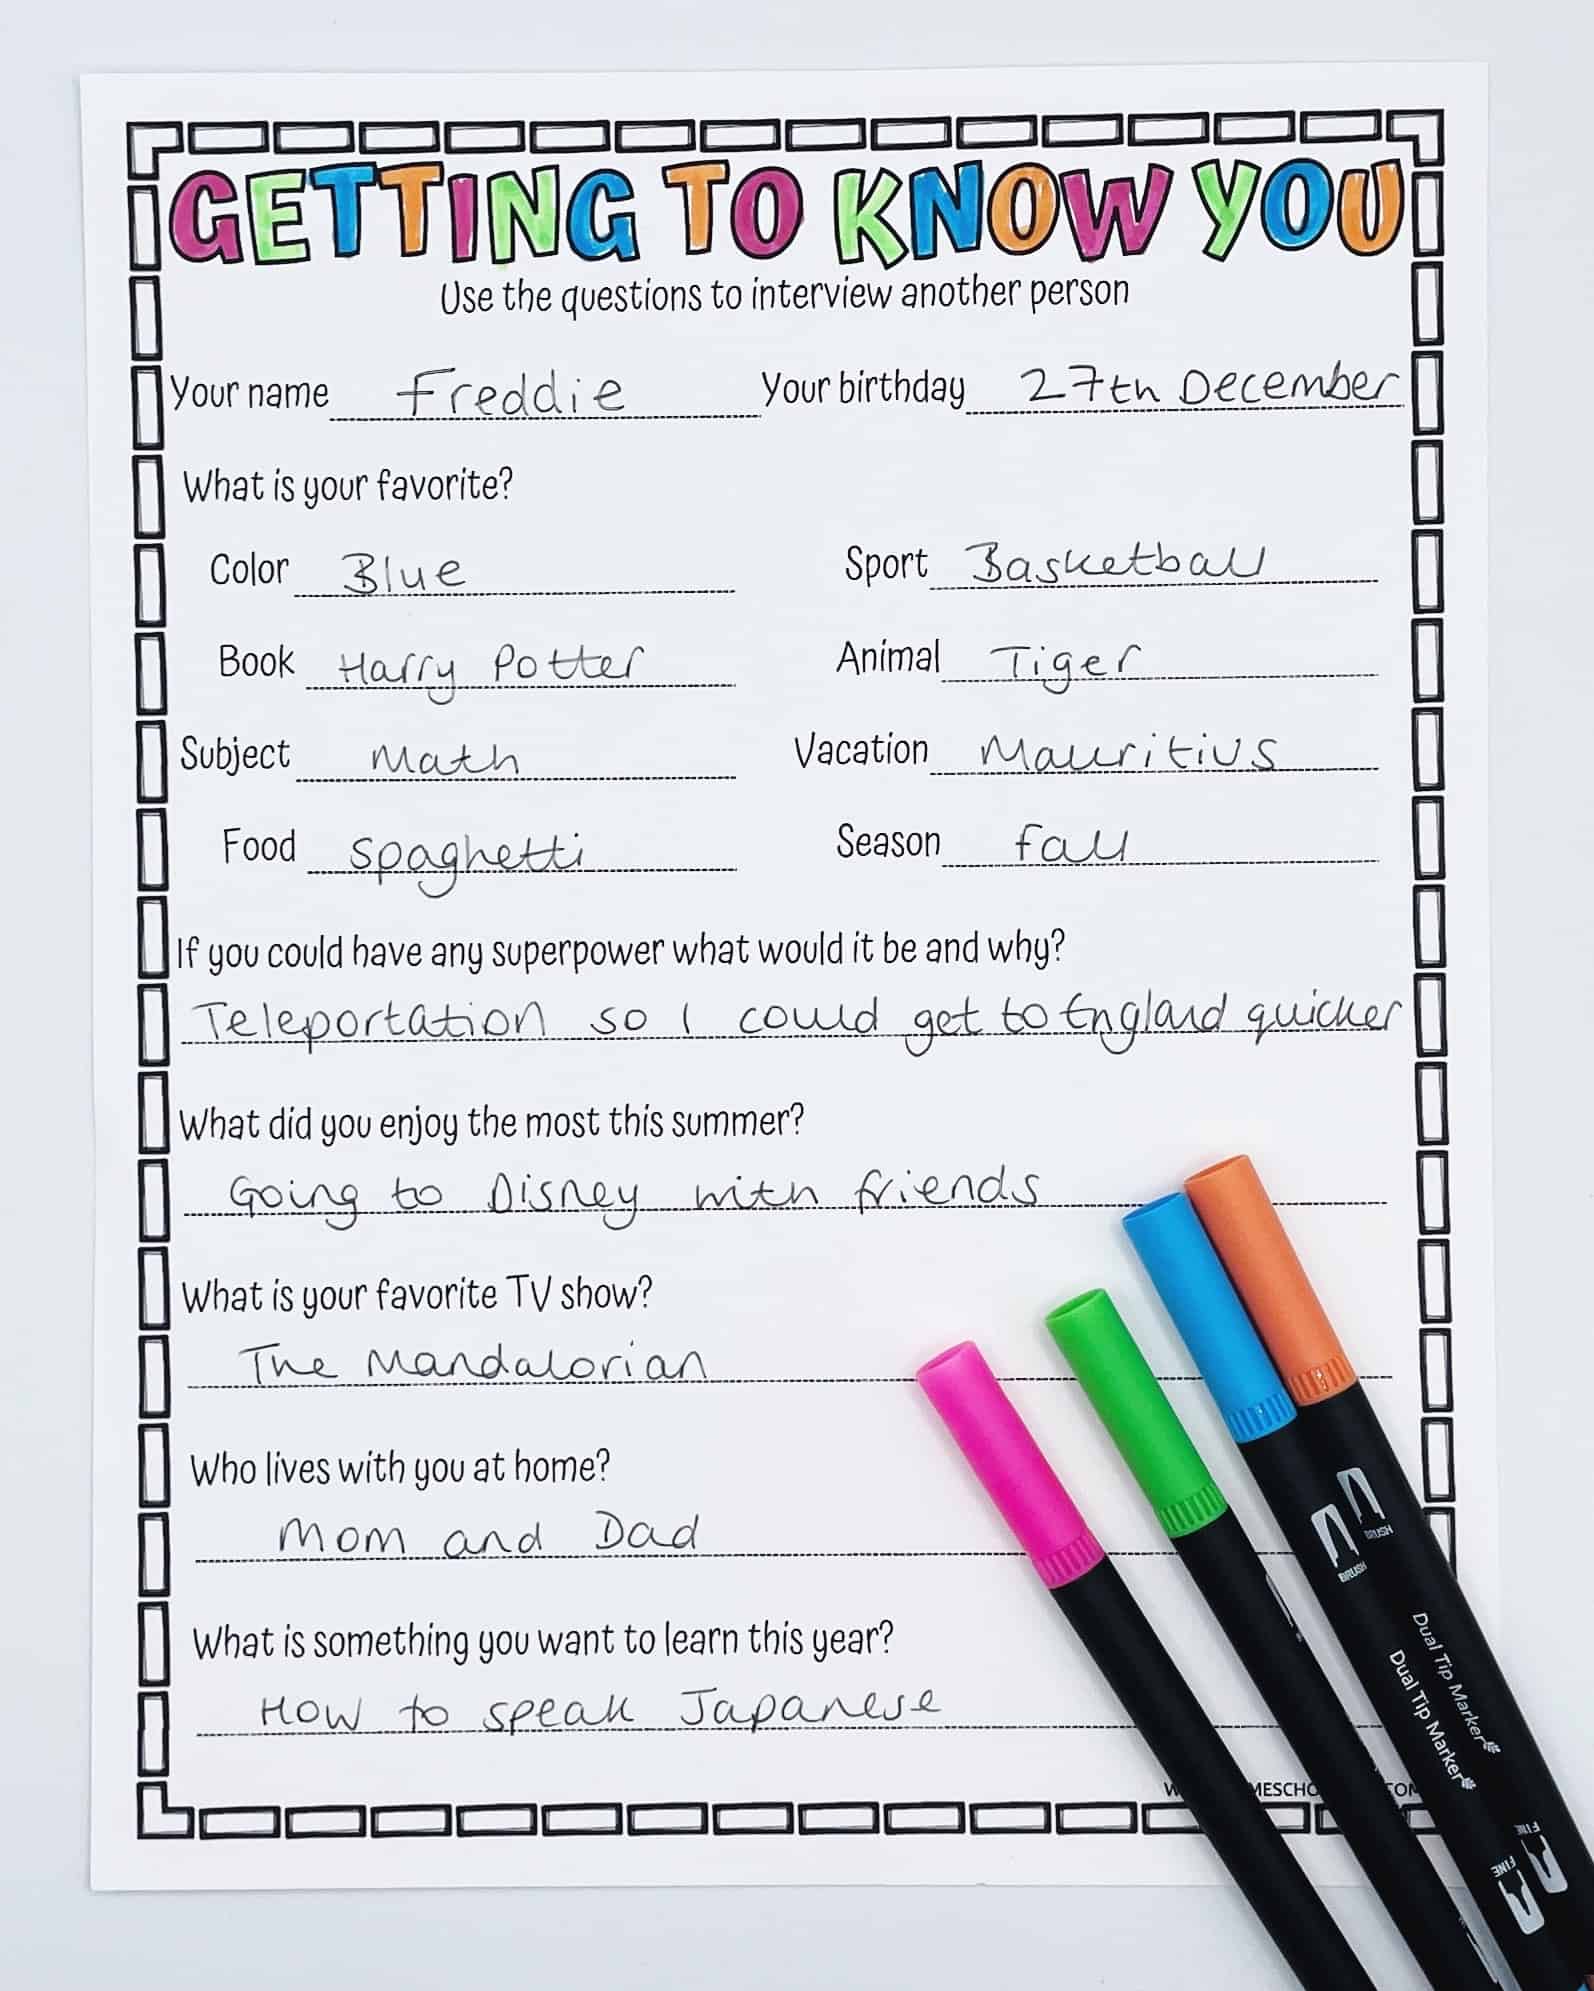 GETTING TO KNOW YOU
Use the questions to interview another person
Your name Freddie Your birthday 27th December
What is your favorite?
Color Blue Sport Basketball
Book Harry Potter Animal Tiger
Subject Math Vacation Mauritius
Food Spaghetti Season fall
If you could have any superpower what would it be and why?
Teleportation so I could get to England quicker
What did you enjoy the most this summer?
Going to Disney with friends
What is your favorite TV show?
The Mandalorian
Who lives with you at home?
Mom and Dad
What is something you want to learn this year?
How to speak Japanese
BRUSH
BRUSH
Dual Tip Marker
Dual Tip Marker
FINE
FINE